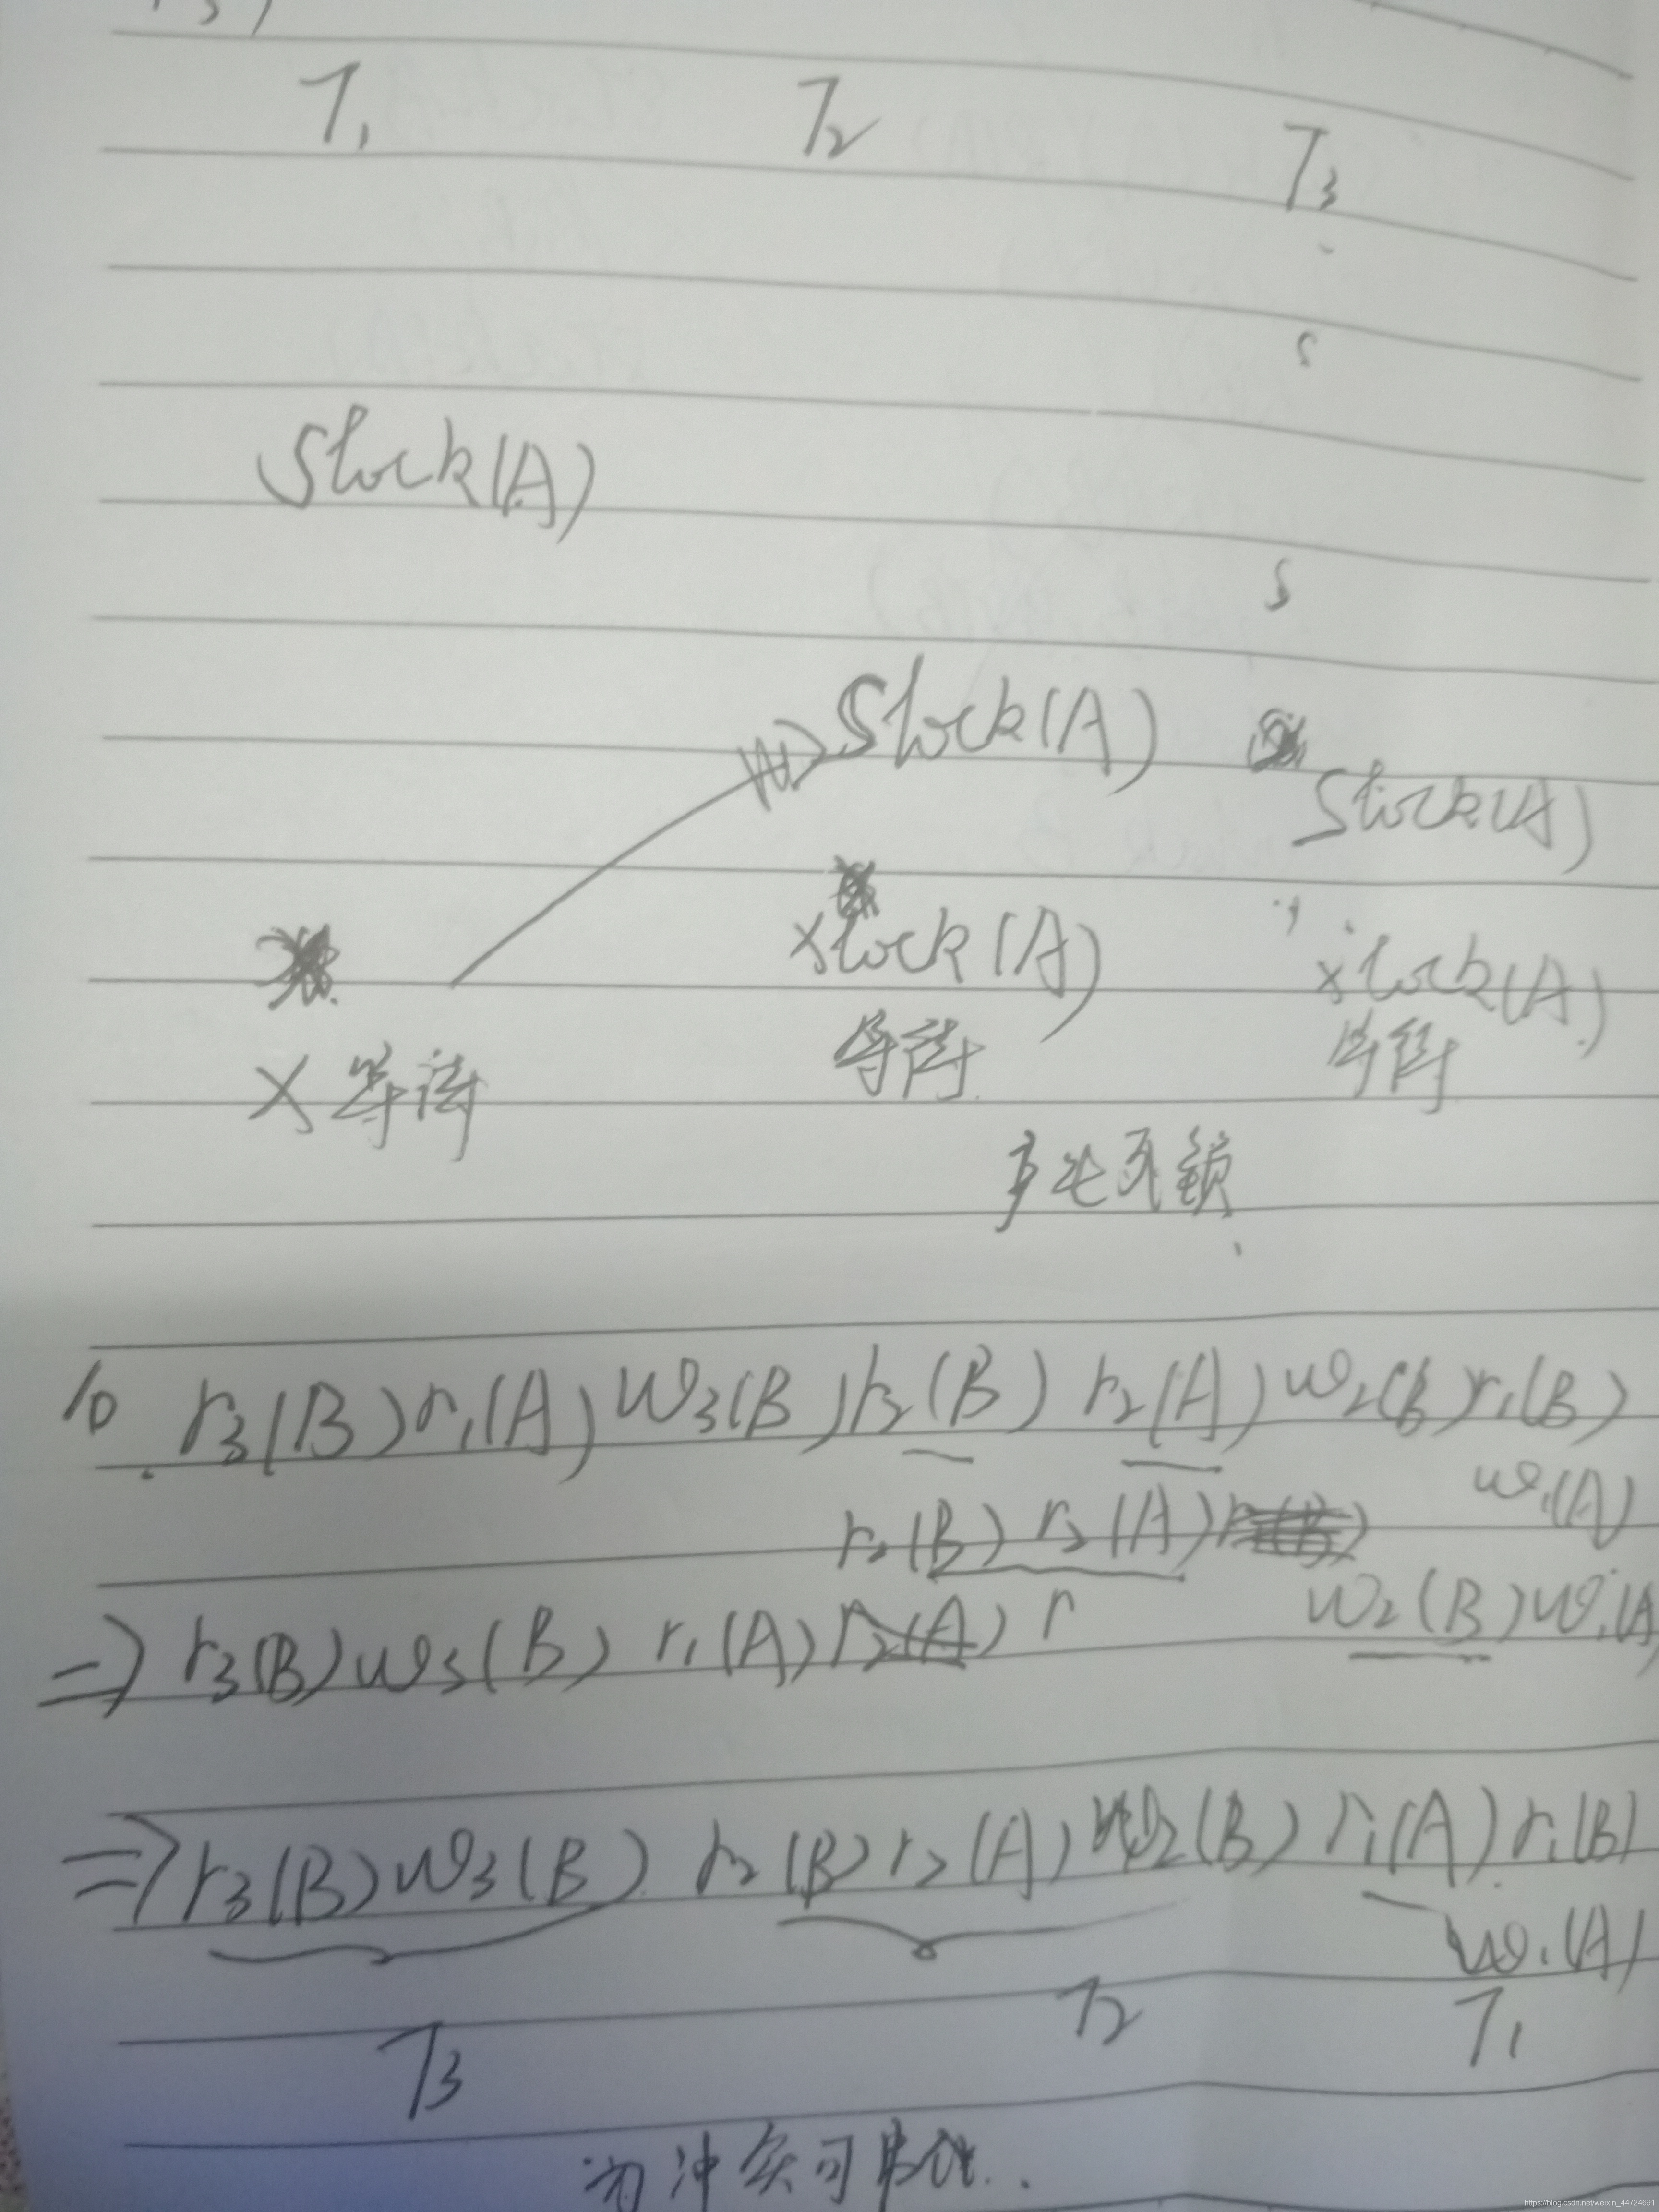 T1 T2 T3
Slock(A)
Slock(A)
Slock(A)
xlock(A) xlock(A)
X等待 等待 等待
产生死锁
10 r3(B)r1(A)w3(B)r2(B)r2(A)w2(B)r1(B)
w1(A)
r2(B)r2(A)
w2(B)w1(A
=> r3(B)w3(B)r1(A)r2(A)r
=> r3(B)w3(B)r2(B)r2(A)w2(B)r1(A)r1(B)
w1(A)
T3 T2 T1
为冲突可串化..
https://blog.csdn.net/weixin_44724691